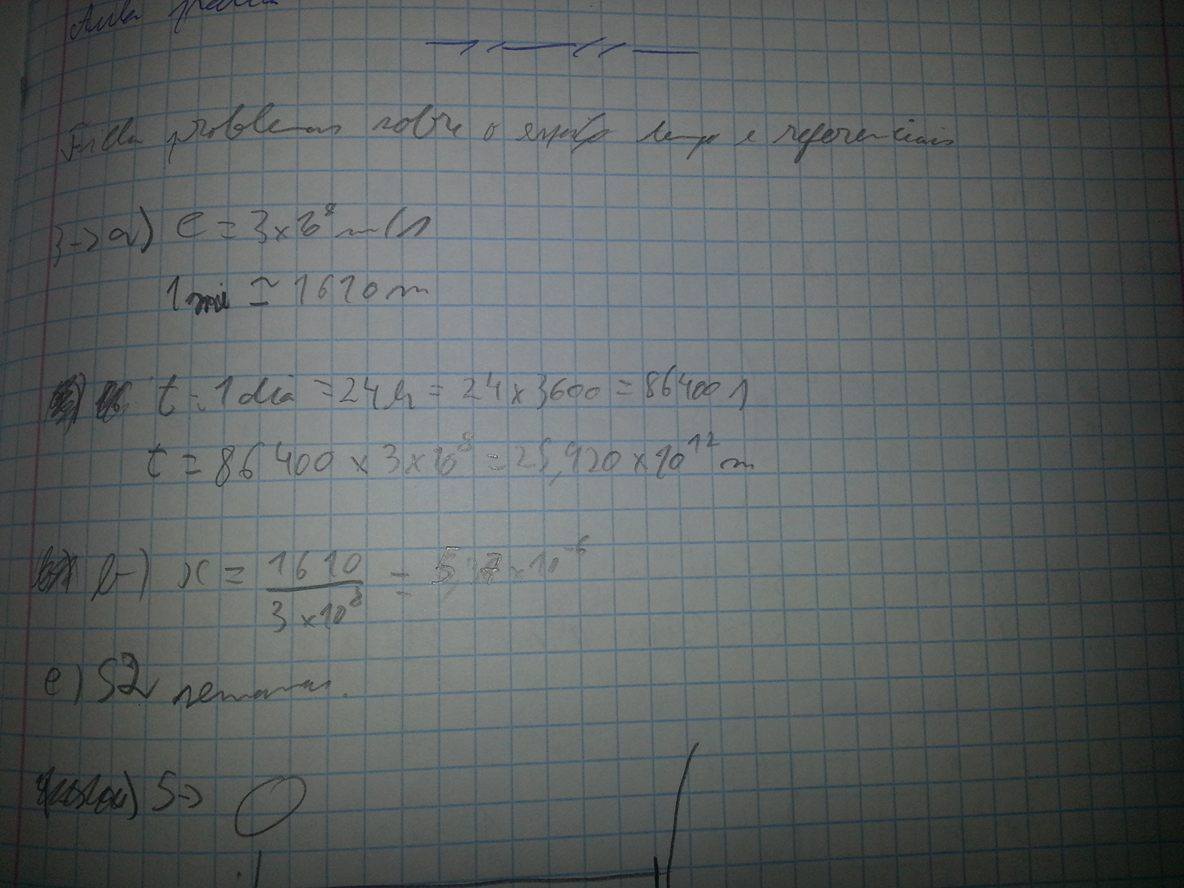 Aula
problemas sobre o espaço tempo e referenciais
3→ a) c = 3x10⁸ m/s
1 mi ≃ 1610 m
t = 1 dia = 24h = 24 x 3600 = 86400 s
t = 86400 x 3 x 10⁸ = 25,920 x 10¹² m
b-) x = 1610 / 3 x 10⁸ = 5,37 x 10⁻⁶
c) 52 semanas.
5→